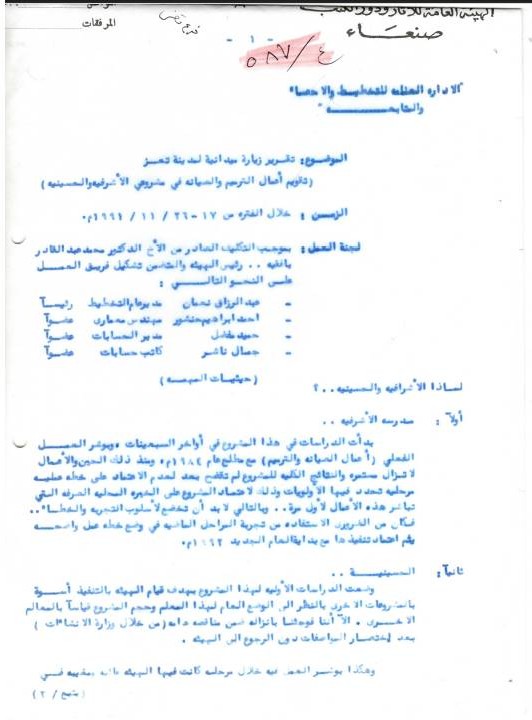 الهيئة العامة للآثار ودور الكتب
صنعاء
المرفقات
- ١ -
٥٨٧/٤
الاداره العامه للتخطيط والاحصاء
والمتابعـــــه
الموضوع: تقرير زيارة ميدانية لمدينة تعز
(تقويم أعمال الترميم والصيانه في مشروعي الأشرفيه والحسينيه)
الزمــن : خلال الفتره من ١٧-٢٦ / ١١ / ١٩٩١م.
لجنة العمل: بموجب التكليف الصادر من الأخ الدكتور محمد عبد القادر
بافقيه .. رئيس الهيئه والمتضمن تشكيل فريق العمل
على النحو التالـــي :
- عبد الرزاق نعمان مدير عام التخطيط رئيساً
- احمد ابراهيم حنشور مهندس معماري عضواً
- حميد مقبل مدير الحسابات عضواً
- جمال ناشر كاتب حسابات عضواً
(حيثيات المهمه)
لماذا الأشرافيه والحسينيه ..؟
أولاً : مدرسه الأشرفيه ..
بدأت الدراسات في هذا المشروع في أواخر السبعينات ويوشر العمل
الفعلي (أعمال الصيانه والترميم) مع مطلع عام ١٩٨٤م. ومنذ ذلك الحين والأعمال
لا تزال مستمره والنتائج الكليه للمشروع لم تتضح بعد لعدم الاعتماد على خطه علميه
مرحليه تحدد فيها الأولويات وذلك لاعتماد المشروع على الخبره المحليه الصرفه التي
تباشر هذه الأعمال لأول مرة .. وبالتالي لا بد أن تخضع لأسلوب التجربه والخطأ ..
فكان من الضروري الاستفاده من تجربة المراحل الماضيه في وضع خطه عمل واضحه
يتم اعتماد تنفيذها مع بداية العام الجديد ١٩٩٢م.
ثانياً: الحسينيـــة ..
وضعت الدراسات الأوليه لهذا المشروع بهدف قيام الهيئه بالتنفيذ أسوة
بالمشروعات الاخرى بالنظر الى الوضع العام لهذا المعلم وحجم المشروع قياساً بالمعالم
الاخرى . الا أننا فوجئنا بانزاله ضمن مناقصه عامه (من خلال وزارة الانشاءات)
بعد اختصار المواصفات دون الرجوع الى الهيئه .
وهكذا يوشر العمل فيه خلال مرحله كانت فيها الهيئه
(يتبع / ٢)